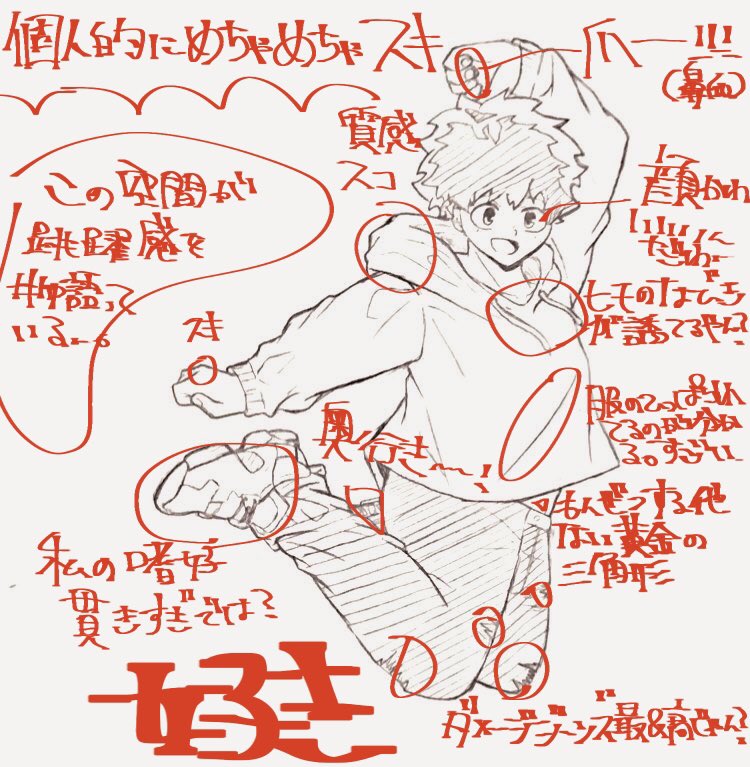 個人的にめちゃめちゃスキ
爪ー!!!
質感
スコ
この空間が
跳躍感を
物語って
いる…。
顔かわ
いいいに
スキ
奥行き〜!
が誘ってるやん?
服のつっぱられ
てるのが分か
る。すごい
もんぜつする他
ない黄金の
三角形
私の嗜好
貫きすぎでは?
好き
ダメージジーンズ最&高じゃん?